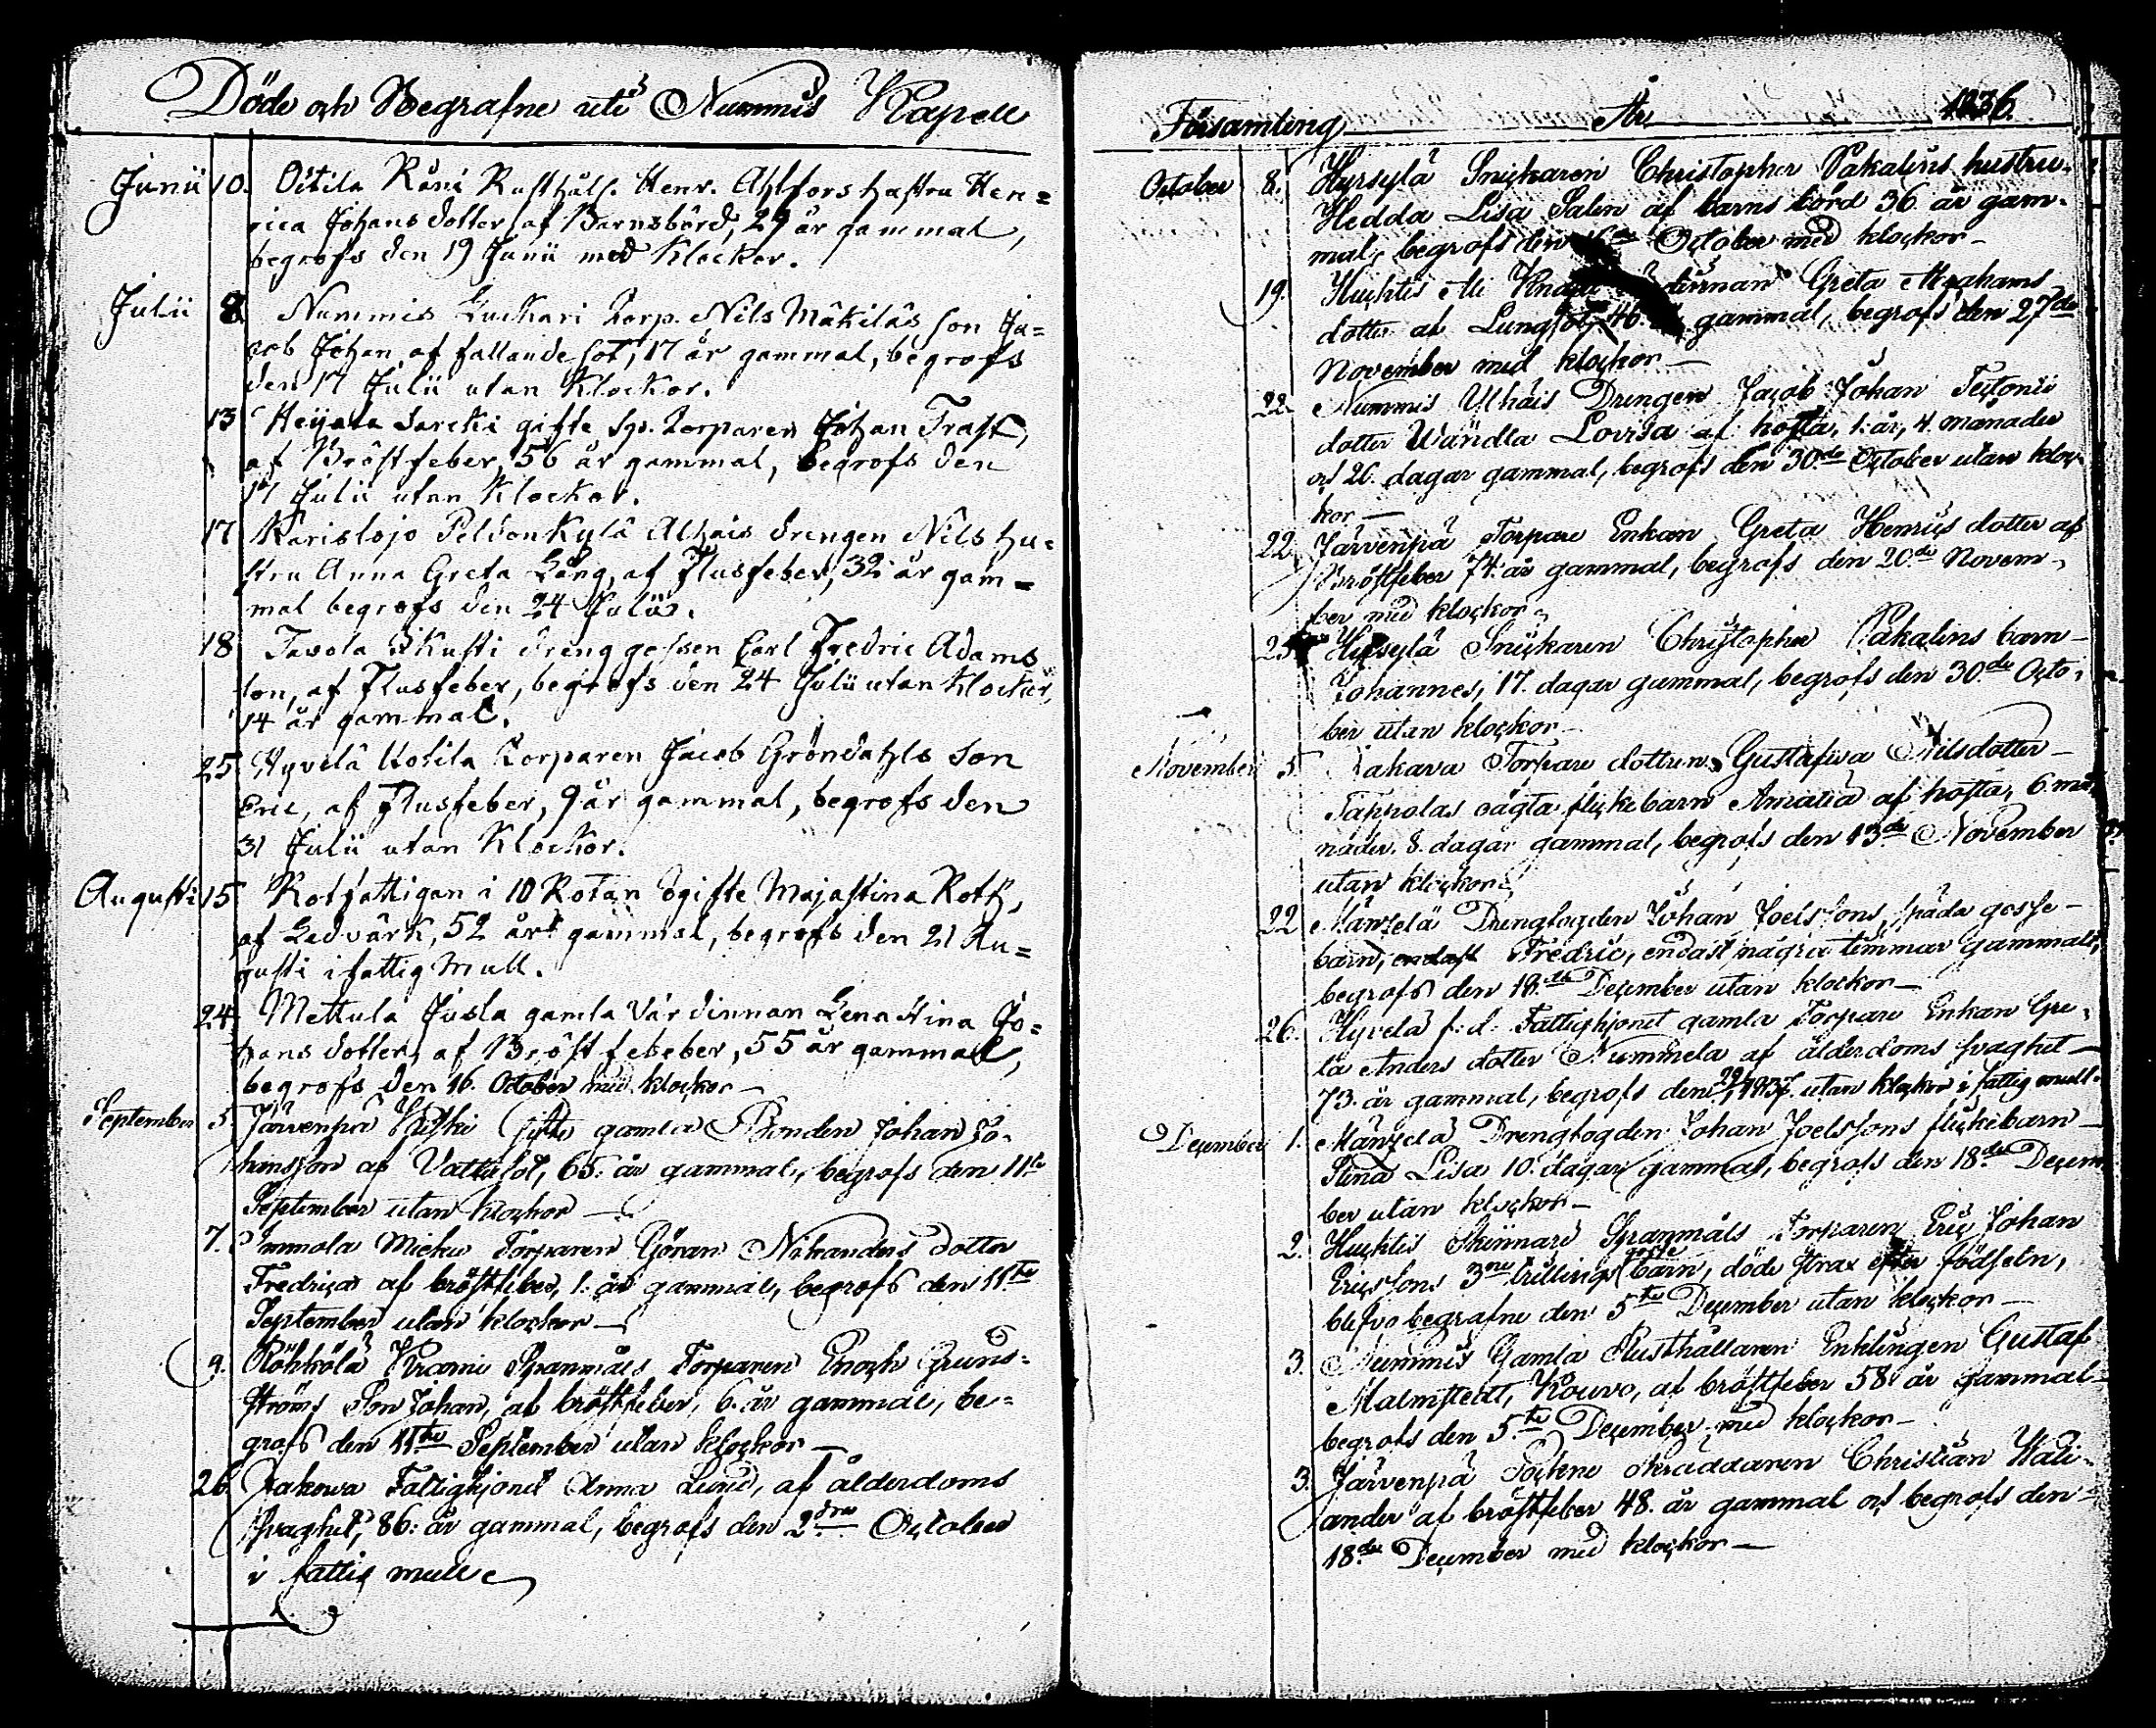 Döde och Begrafne uti Nummis Kapell
Junii 10. Oitila Räni Rusthåll. Henr. Ahlfors hustru Hen=
rica Johansdotter af Barnsbörd, 29 år gammal,
begrofs den 19 Junii med Klockor.
Julii 8 Nummis Luckari Torp. Nils Mäkiläs son Ja=
cob Johan, af fallandesot, 17 år gammal, begrofs
den 17 Julii utan Klockor.
13 Heijala Jareki gifte Sp. Torparen Johan Trast,
af Bröstfeber, 56 år gammal, begrofs den
17 Julii utan Klockor.
17 Karislojo Peldonkylä Alhais drengen Nils hu=
stru Anna Greta Lång, af Flusfeber, 32 år gam=
mal begrofs den 24 Julii.
18 Tavola Skusti drenggossen Carl Fredric Adams
son, af Flusfeber, begrofs den 24 Julii utan Klockor,
14 år gammal.
25 Hyvelä Kotila Torparen Jacob Gröndahls son
Eric, af Flusfeber, 9 år gammal, begrofs den
31 Julii utan Klockor.
Augusti 15 Rotfattigan i 10 Rotan ogifte Majastina Roth,
af Ledvärk, 52 år gammal, begrofs den 21 Au=
gusti i fattig Mull.
24 Mettula Jusla gamla Värdinnan Lena Stina Jo=
hansdotter, af Bröstfebeber, 55 år gammal,
begrofs den 16. October med klockor
September 5. Järvenpä Uuski gifte gamla Bonden Johan Jo-
hansson af Vattusot, 65. år gammal, begrofs den 11te
September utan klockor
7. Immola Micku Torparen Göran Nikanders dotter
Fredrica af bröstfeber, 1. år gammal, begrofs den 11te
September utan klockor
9. Röhkölä Krami Spanmåls Torparen Enoch Grund-
ströms Son Johan, af bröstfeber, 6. år gammal, be=
grofs den 11te September utan klockor
26. Jakowa Fattighjonet Anna Lund, af ålderdoms
svaghet, 86. år gammal, begrofs den 2dra October
i fattig mull
Församling År 1836.
October 8. Hyrsylä Snickaren Christopher Pakalins hustru
Hedda Lisa Salin af barnsbörd 36 år gam-
mal, begrofs den October med klockor
19. Huhtis Ali Greta Abrahams
dotter af Lungsot, 46 gammal, begrofs den 27de
November med klockor
22. Nummis Ulhäis Drengen Jacob Johan Textonii
dotter Wändla Lovisa af hosta, 1. år, 4. månader
och 26. dagar gammal, begrofs den 30de October utan kloc-
kor
22. Järvenpä Torpare Enkan Greta Henrics dotter af
Bröstfeber 74. år gammal, begrofs den 20de Novem-
ber med klockor
25 Hyrsylä Snickaren Christopher Pakalins barn
Johannes, 17. dagar gammal, begrofs den 30de Octo-
ber utan klockor
November 5. Jakava Torpare dottren Gustafwa Nilsdotter
Tappolas oägta flickebarn Amalia af hosta, 6. må-
nader. 8. dagar gammal, begrofs den 13de November
utan klockor
22 Mänselä Drengfogden Johan Joelssons späda gosse-
barn, endast Fredric, endast några timmar gammalt,
begrofs den 18de December utan klockor
26. Hyvelä f: d: Fattighjonet gamla Torpare Enkan Gre-
ta Anders dotter Nummela af ålderdoms svaghet
73. år gammal, begrofs den 1837. utan klockor i fattig mull.
December 1. Mänselä Drengfogden Johan Joelssons flickebarn
Stina Lisa 10. dagar gammal, begrofs den 18de Decem-
ber utan klockor
2. Huhtis Skinnari Spanmåls Torparen Eric Johan
Ericssons 3ne trillings gosse barn, döde strax efter födseln,
blefvo begrafne den 5te December utan klockor
3. Nummis Gamla Rusthållaren Enklingen Gustaf
Malmstedt, Kouvo, af bröstfeber 58 år gammal
begrofs den 5te December med klockor
3. Järvenpä Sockne skräddaren Christian Wali-
ander af bröstfeber 48. år gammal och begrofs den
18de December med klockor